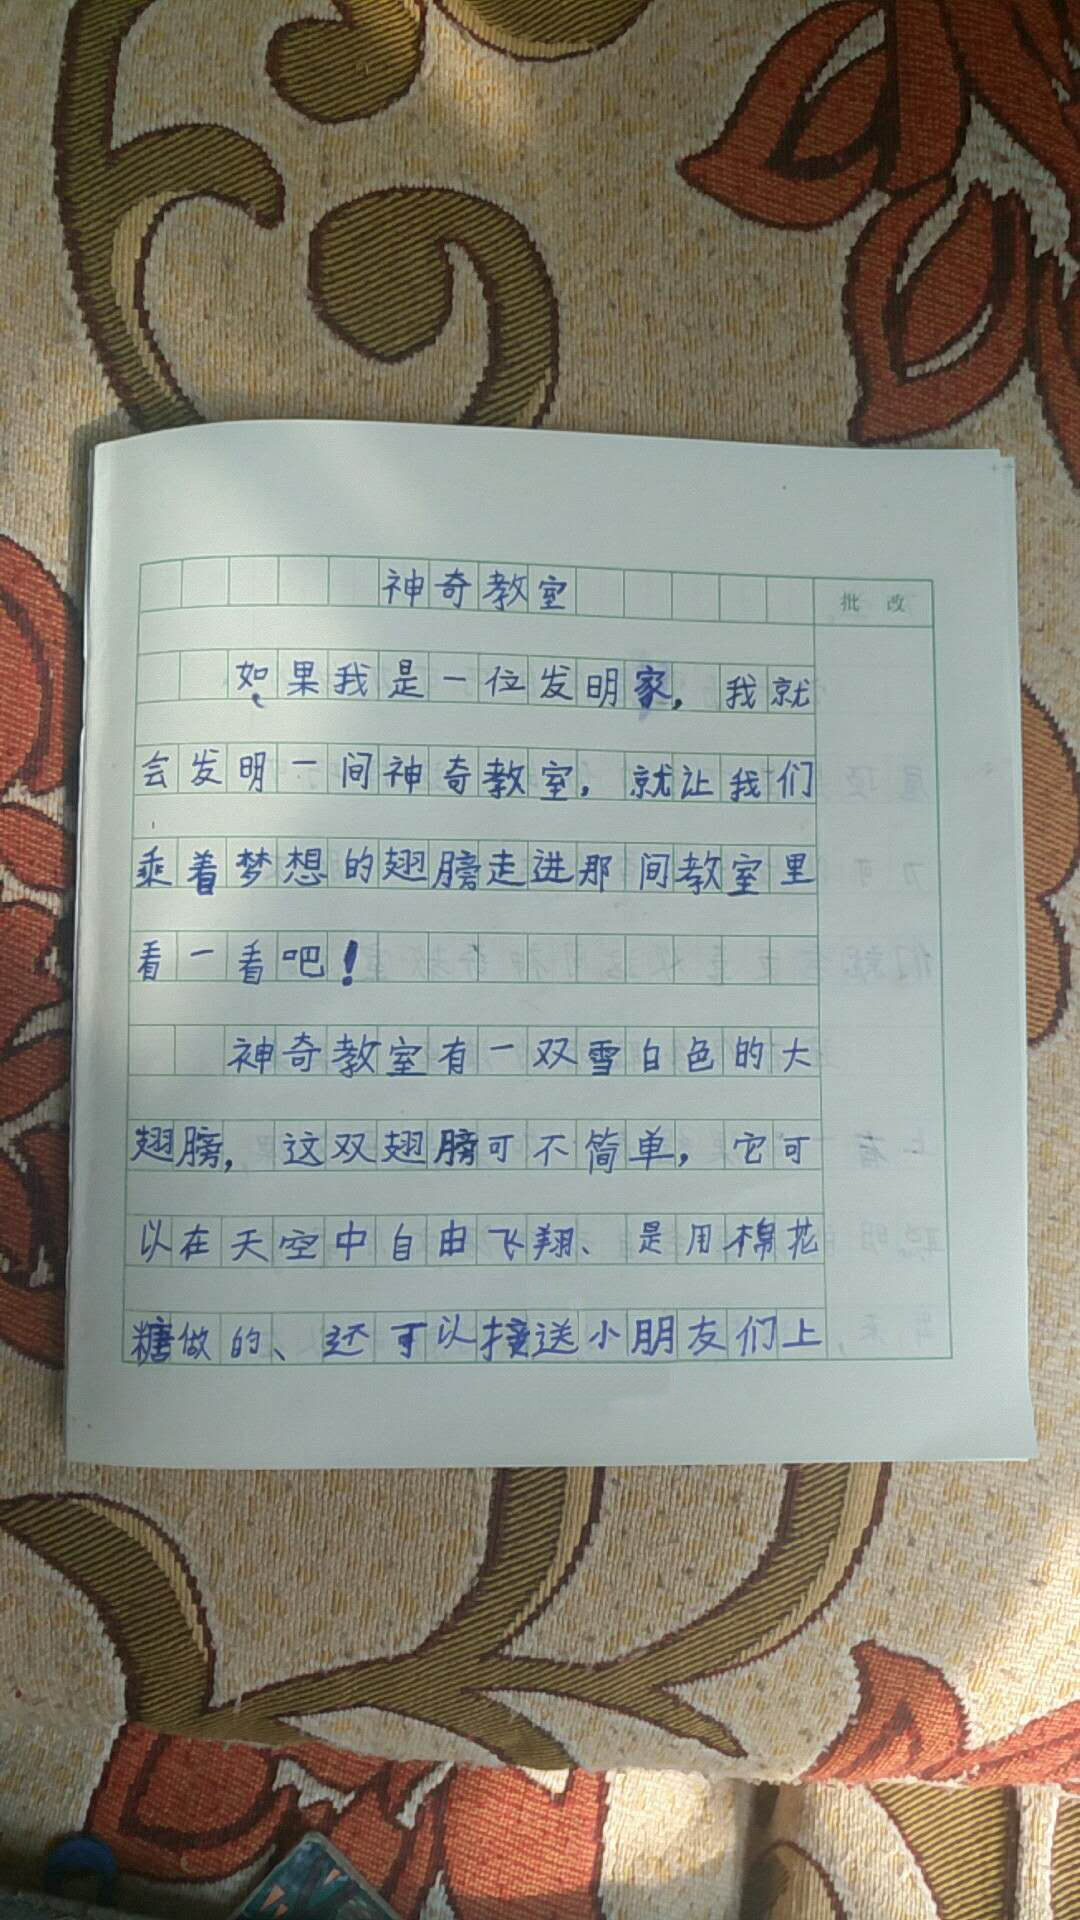 神奇教室
批改
如果我是一位发明家，我就
会发明一间神奇教室，就让我们
乘着梦想的翅膀走进那间教室里
看一看吧！
神奇教室有一双雪白色的大
翅膀，这双翅膀可不简单，它可
以在天空中自由飞翔、是用棉花
糖做的、还可以接送小朋友们上